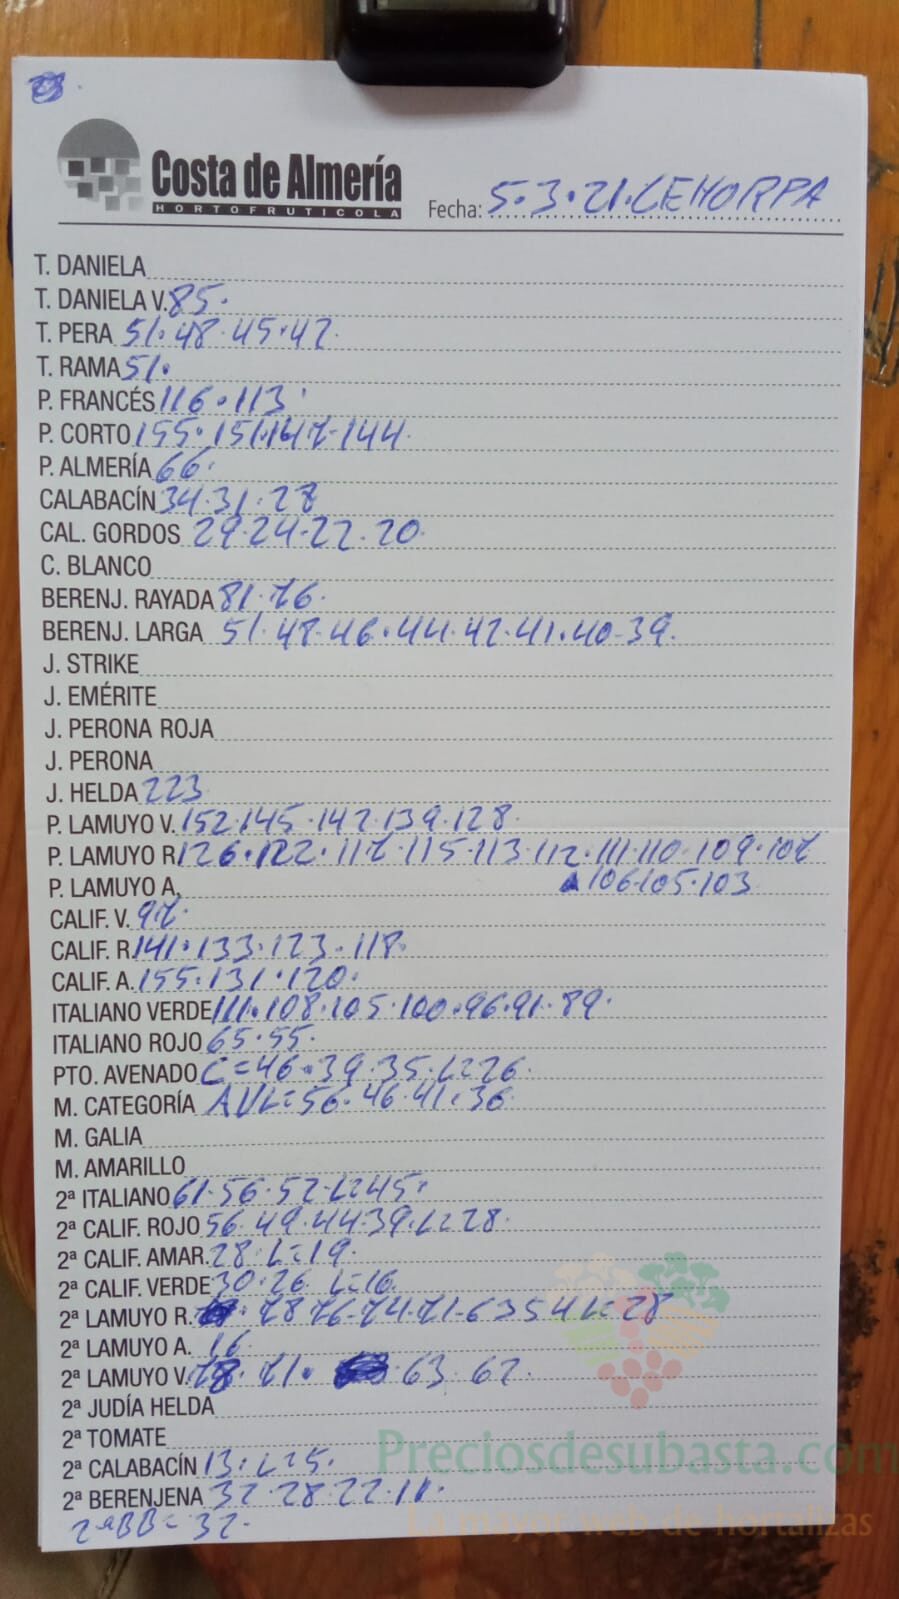 Costa de Almería
HORTOFRUTICOLA
Fecha: 5.3.21.CEHORPA
T. DANIELA
T. DANIELA V. 85.
T. PERA 51.48.45.42.
T. RAMA 51.
P. FRANCÉS 116.113.
P. CORTO 155.151.147-144.
P. ALMERÍA 66.
CALABACÍN 34.31.28
CAL. GORDOS 29.24.22.20.
C. BLANCO
BERENJ. RAYADA 81.76.
BERENJ. LARGA 51.48.46.44.42.41.40-39.
J. STRIKE
J. EMÉRITE
J. PERONA ROJA
J. PERONA
J. HELDA 223
P. LAMUYO V. 152.145.142.139.128.
P. LAMUYO R 126.122.117.115.113.112.111.110.109.107
P. LAMUYO A. 106.105.103
CALIF. V. 97.
CALIF. R. 141.133.123.118.
CALIF. A. 155.131.120.
ITALIANO VERDE 111.108.105.100.96.91.89.
ITALIANO ROJO 65.55.
PTO. AVENADO C=46.39.35.L=26.
M. CATEGORÍA AVL=56.46.41.36.
M. GALIA
M. AMARILLO
2ª ITALIANO 61.56.52.L=45.
2ª CALIF. ROJO 56.49.44.39.L=28.
2ª CALIF. AMAR. 28.L=19.
2ª CALIF. VERDE 30.26. L=16.
2ª LAMUYO R. 78 76-74.71-63 54 L=28
2ª LAMUYO A. 16
2ª LAMUYO V. 78.71. 63.62.
2ª JUDÍA HELDA
2ª TOMATE
2ª CALABACÍN 13.L=5.
2ª BERENJENA 32.28.22.11.
2ªBB=32.
Preciosdesubasta.com
La mayor web de hortalizas